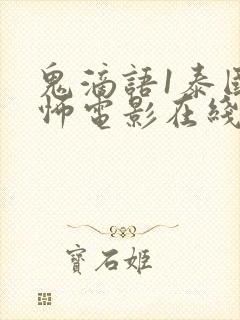 鬼滴語1泰国
怖電影在綫
寶石姬